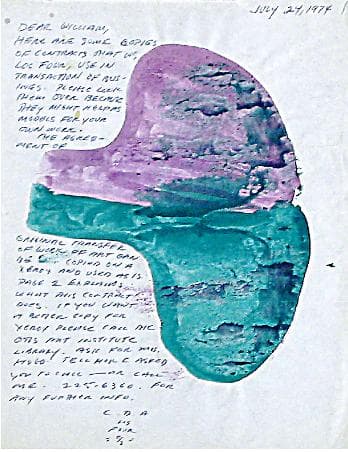 JULY 24, 1974
DEAR WILLIAM,
HERE ARE SOME COPIES
OF CONTRACTS THAT WE,
LOS FOUR, USE IN
TRANSACTION OF BUS-
INES. PLEASE LOOK
THEM OVER BECAUSE
THEY MIGHT HELP AS
MODELS FOR YOUR
OWN WORK.
THE AGREE-
MENT OF
ORIGINAL TRANSFER
OF WORK OF ART CAN
BE COPIED ON A
XEROX AND USED AS IS.
PAGE 2 EXPLAINS
WHAT THIS CONTRACT
DOES. IF YOU WANT
A BETTER COPY FOR
XEROX PLEASE CALL THE
OTIS ART INSTITUTE
LIBRARY. ASK FOR MRS.
TELL HER I ASKED
YOU TO CALL — OR CALL
ME. 225-6360. FOR
ANY FURTHER INFO.
C D A
LOS
FOUR